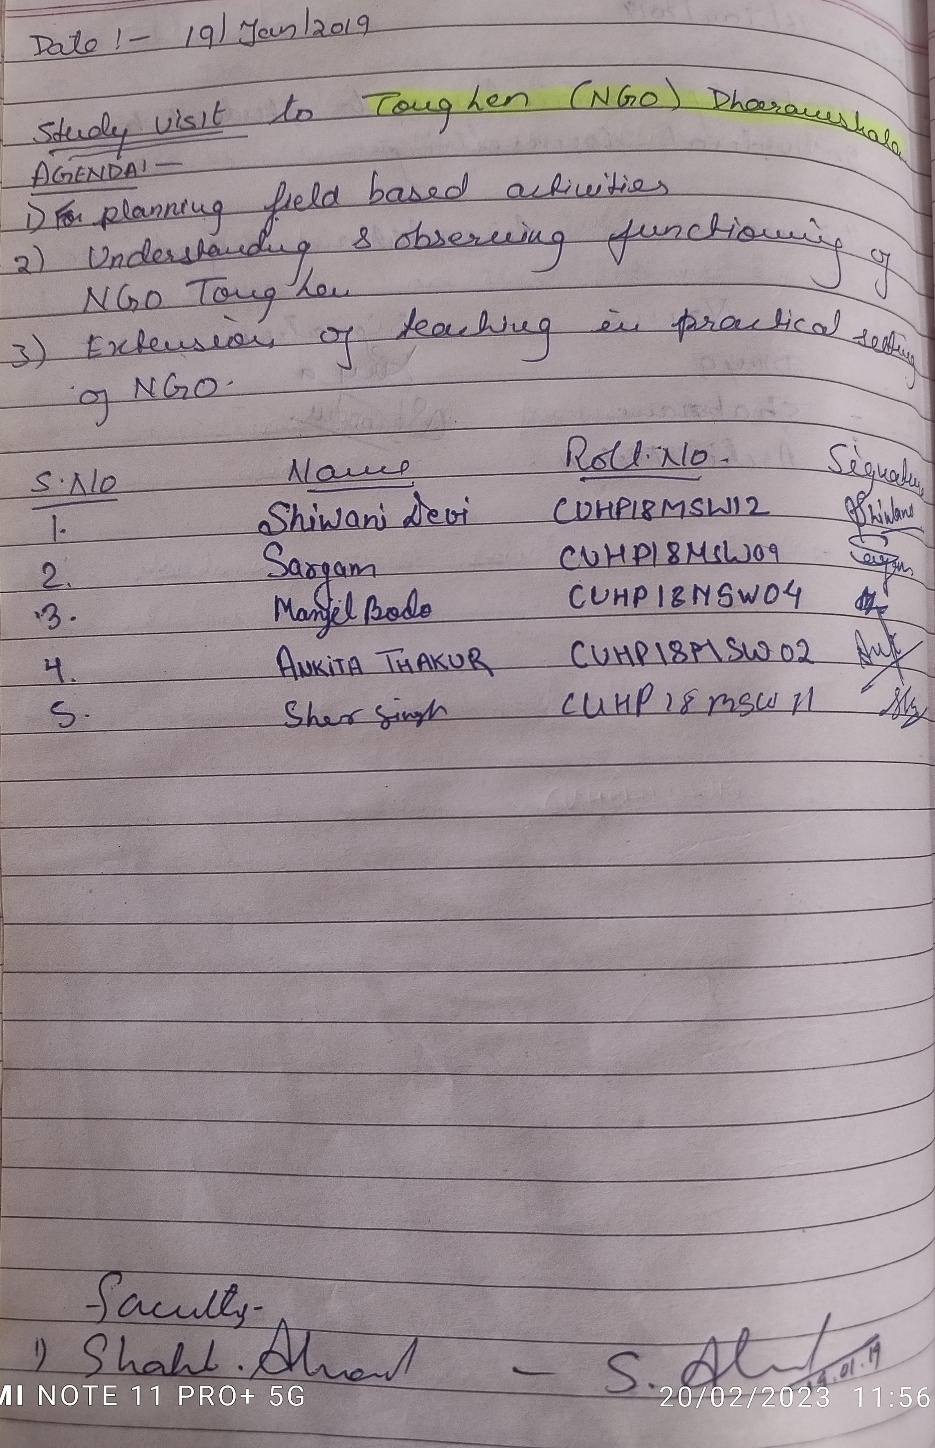 Date :- 19/Jan/2019
Study visit to Tong len (NGO) Dharamshala
AGENDA:-
1) For planning field based activities
2) Understanding & observing functioning of
NGO Tong len
3) Extension of teaching in practical setting
of NGO.
S.No Name Roll.No. Signature
1. Shiwani Devi CUHP18MSW12 Shiwani
2. Sargam CUHP18MSW09 Sargam
3. Manjil Bodo CUHP18MSW04
4. ANKITA THAKUR CUHP18MSW02
5. Sher Singh CUHP18MSW11
Faculty-
1) Shahl. Ahmad - S. 19.01.19
MI NOTE 11 PRO+ 5G 20/02/2023 11:56